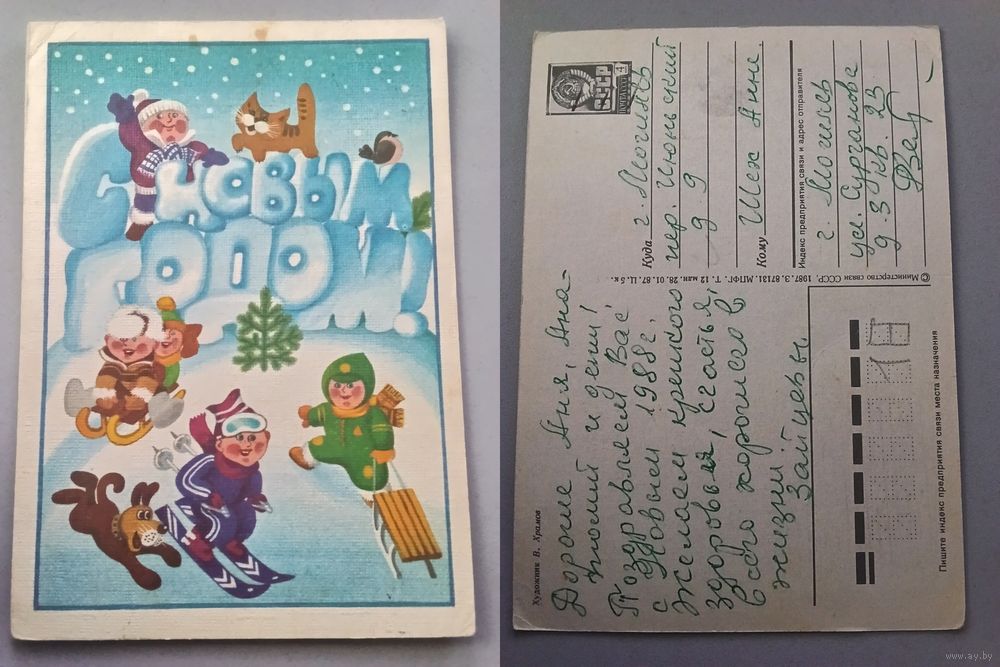 С НОВЫМ
ГОДОМ!
Художник В. Храмов
Дорогие Аня, Ана-
толий и дети!
Поздравляем Вас
с Новым 1988г.
Желаем крепкого
здоровья, счастья,
всего хорошего в
жизни.
Зайцевы.
© Министерство связи СССР. 1987. З. 87131. МПФГ. Т. 12 млн. 28. 01. 87. Ц. 5 к.
СССР
4
ПОЧТА
Куда г. Могилёв
пер. Июньский
д 9
Кому Шех Анне.
Индекс предприятия связи и адрес отправителя
г. Могилев
ул. Сурганова
д. 3 кв. 23
Пишите индекс предприятия связи места назначения
www.ay.by